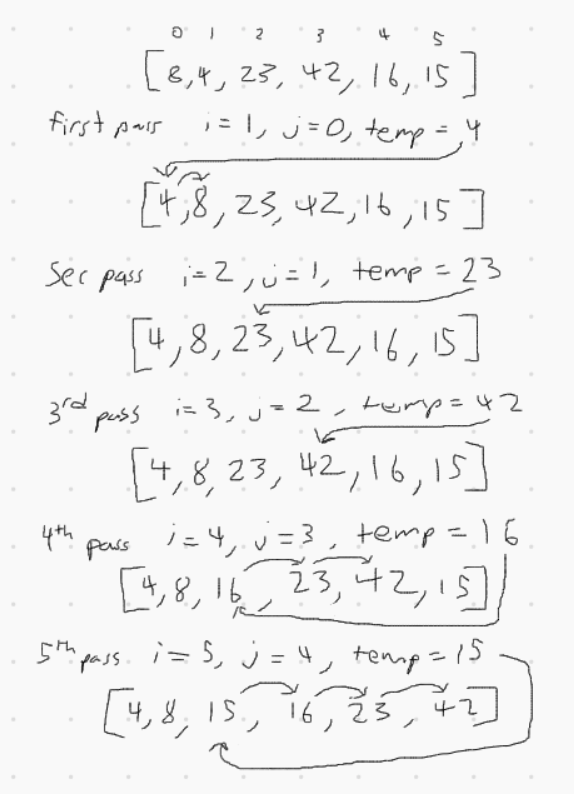 0 1 2 3 4 5
[8,4, 23, 42, 16, 15]
first pass i=1, j=0, temp = 4
[4,8, 23, 42, 16, 15]
Sec pass i=2, j=1, temp = 23
[4, 8, 23, 42, 16, 15]
3rd pass i=3, j=2, temp = 42
[4, 8, 23, 42, 16, 15]
4th pass i=4, j=3, temp = 16
[4, 8, 16, 23, 42, 15]
5th pass i=5, j=4, temp = 15
[4, 8, 15, 16, 23, 42]